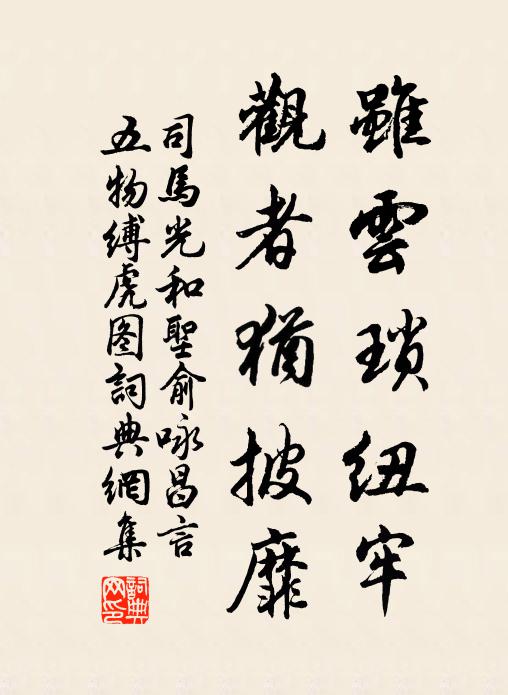 雖雲瑣紐牢
觀者猶披靡
司馬光和聖俞咏昌言
五物縛虎图詞典網集